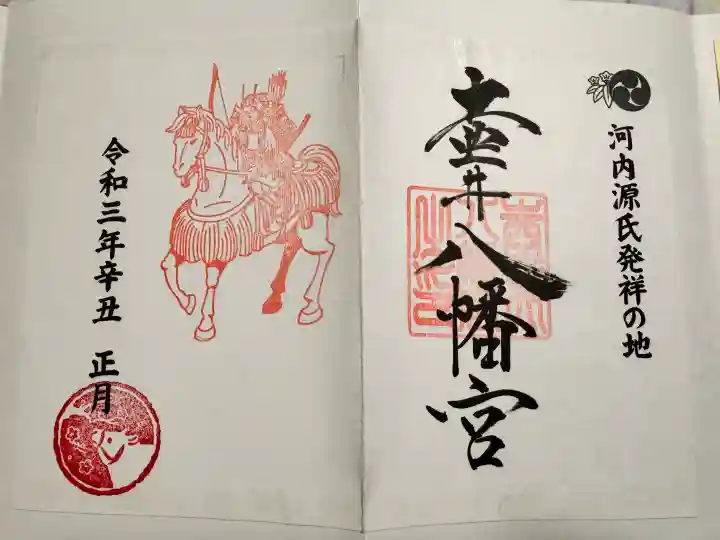 河内源氏発祥の地
壷井八幡宮
令和三年辛丑 正月